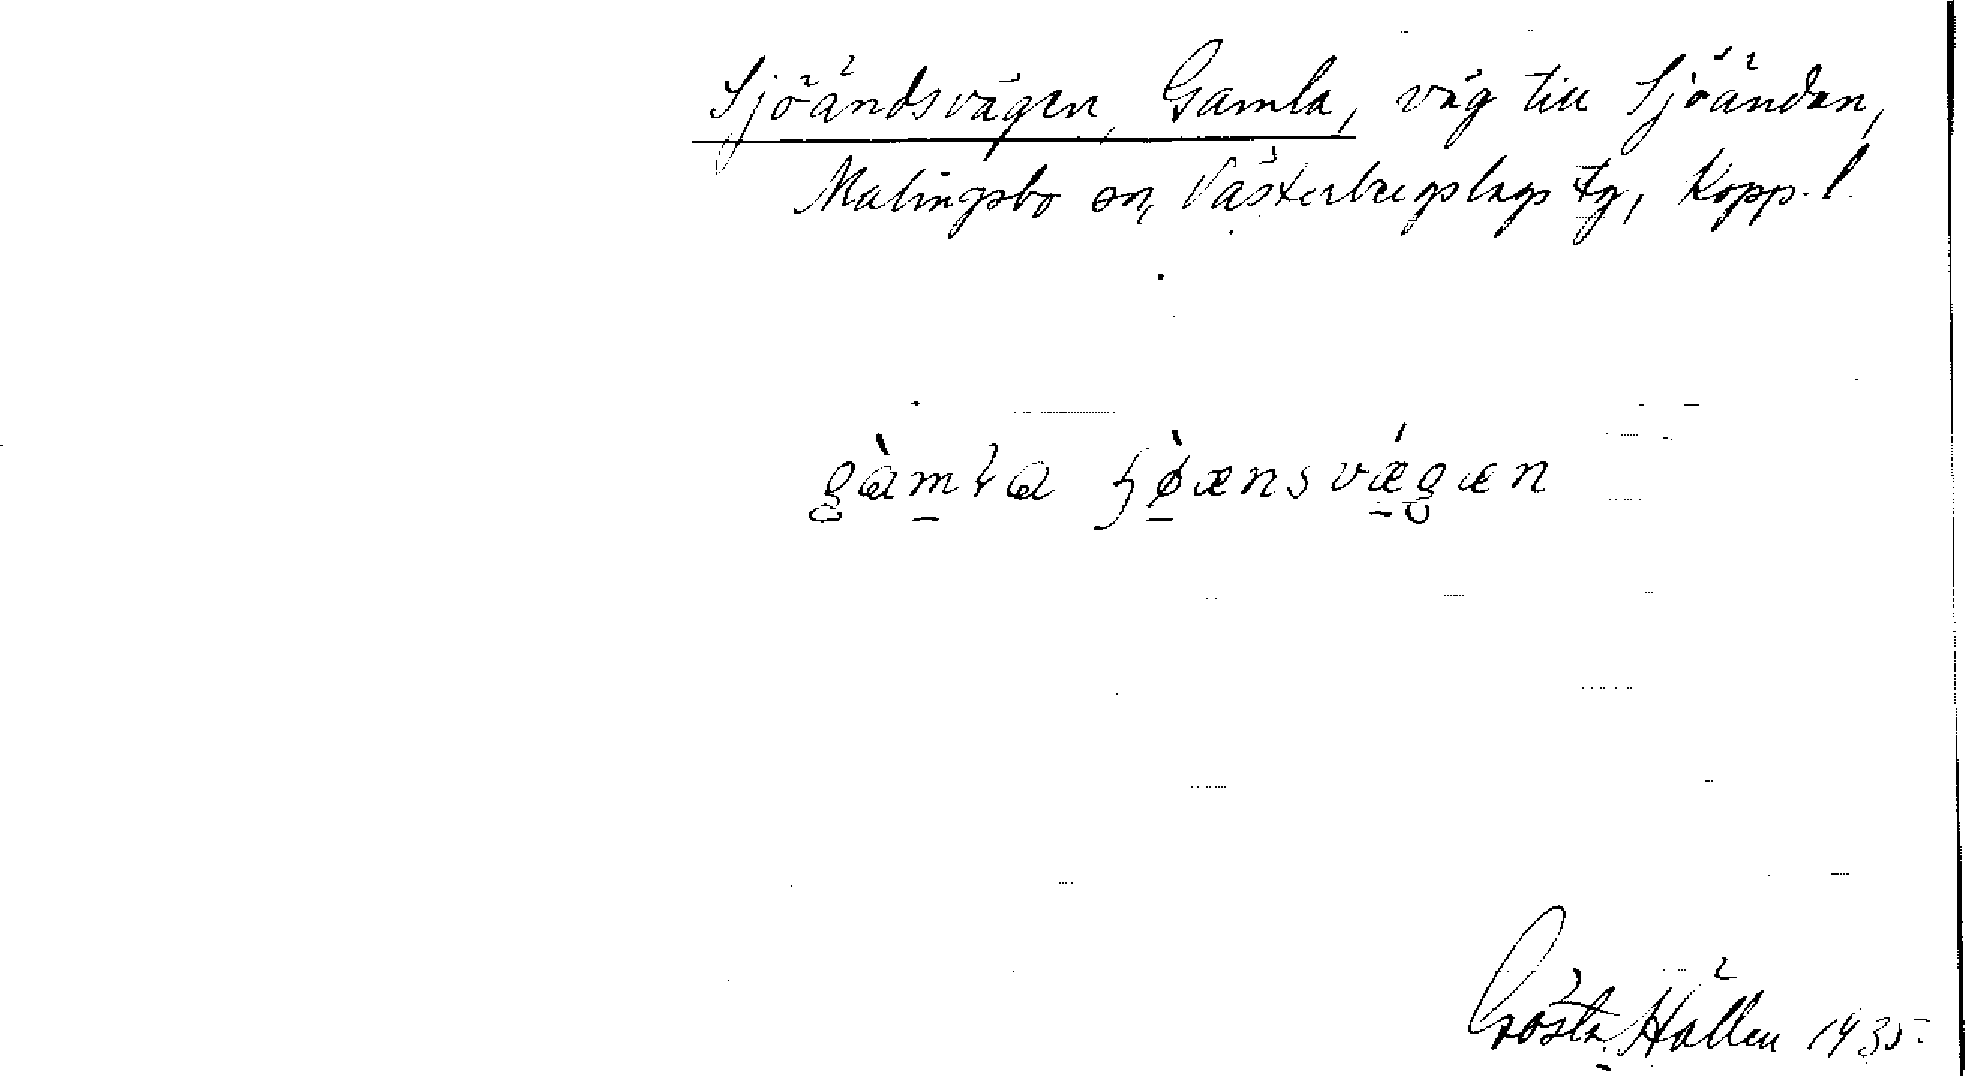 Sjöändsvägen, Gamla, väg till Sjöändan,
Malingsbo sn, Västerbergslags tg, Kopp. l.
gàmɬa ʃø̀ænsvǽgæn
Gösta Hällen 1935.